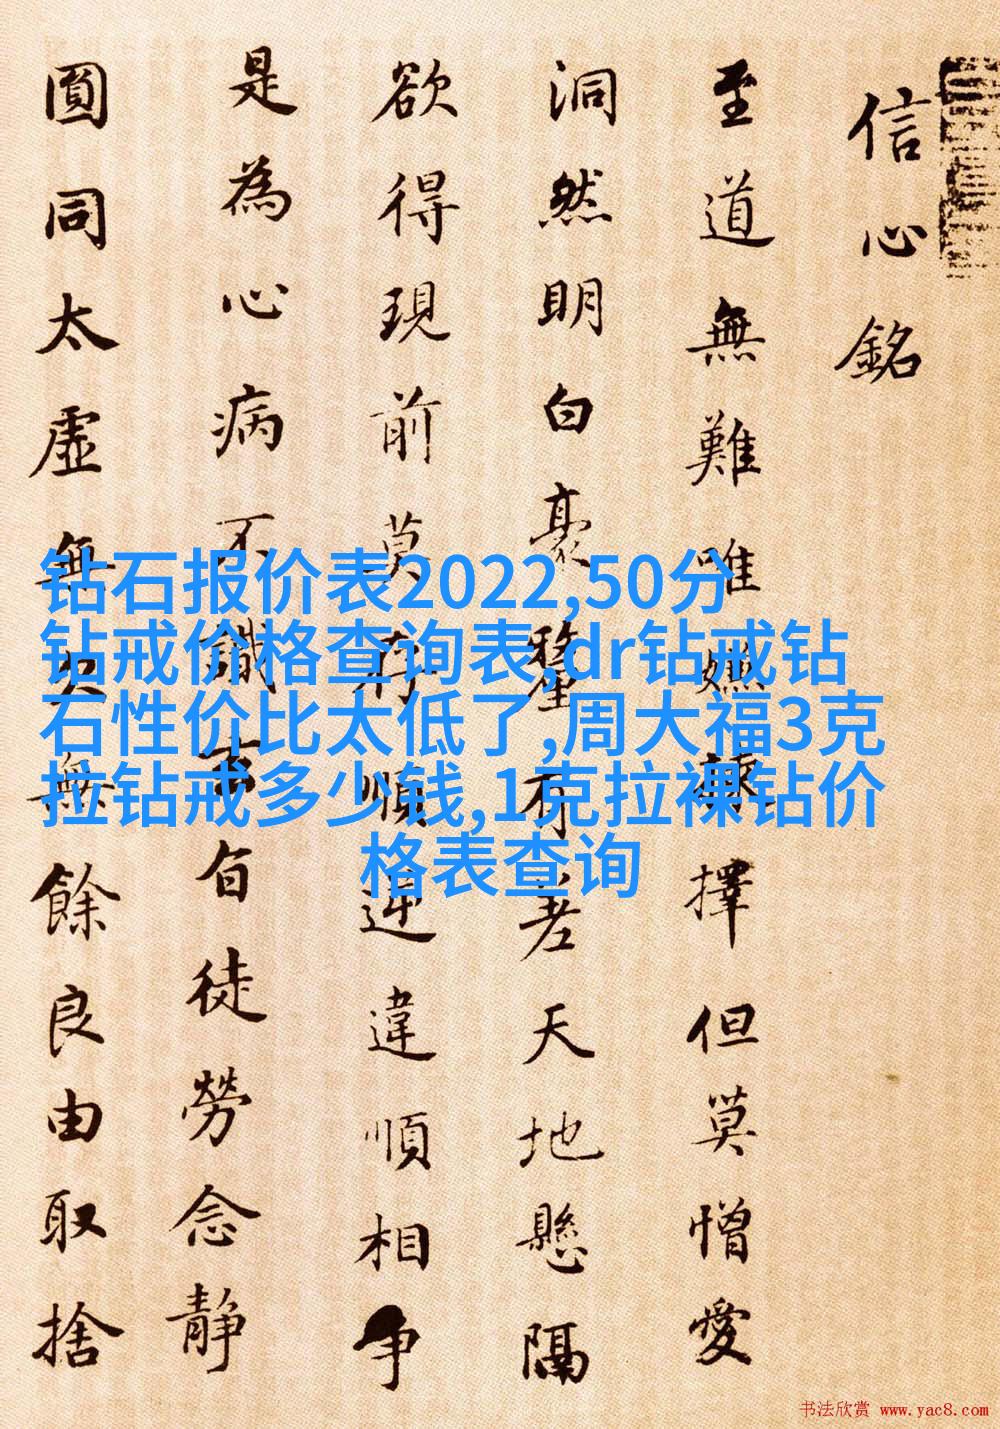 信心銘
至道無難唯嫌揀擇但莫憎愛
洞然明白豪釐有差天地懸隔
欲得現前莫存順逆違順相争
是為心病不識玄旨徒勞念静
圓同太虛無欠無餘良由取捨
钻石报价表2022,50分
钻戒价格查询表,dr钻戒钻
石性价比太低了,周大福3克
拉钻戒多少钱,1克拉裸钻价
格表查询
书法欣赏 www.yac8.com